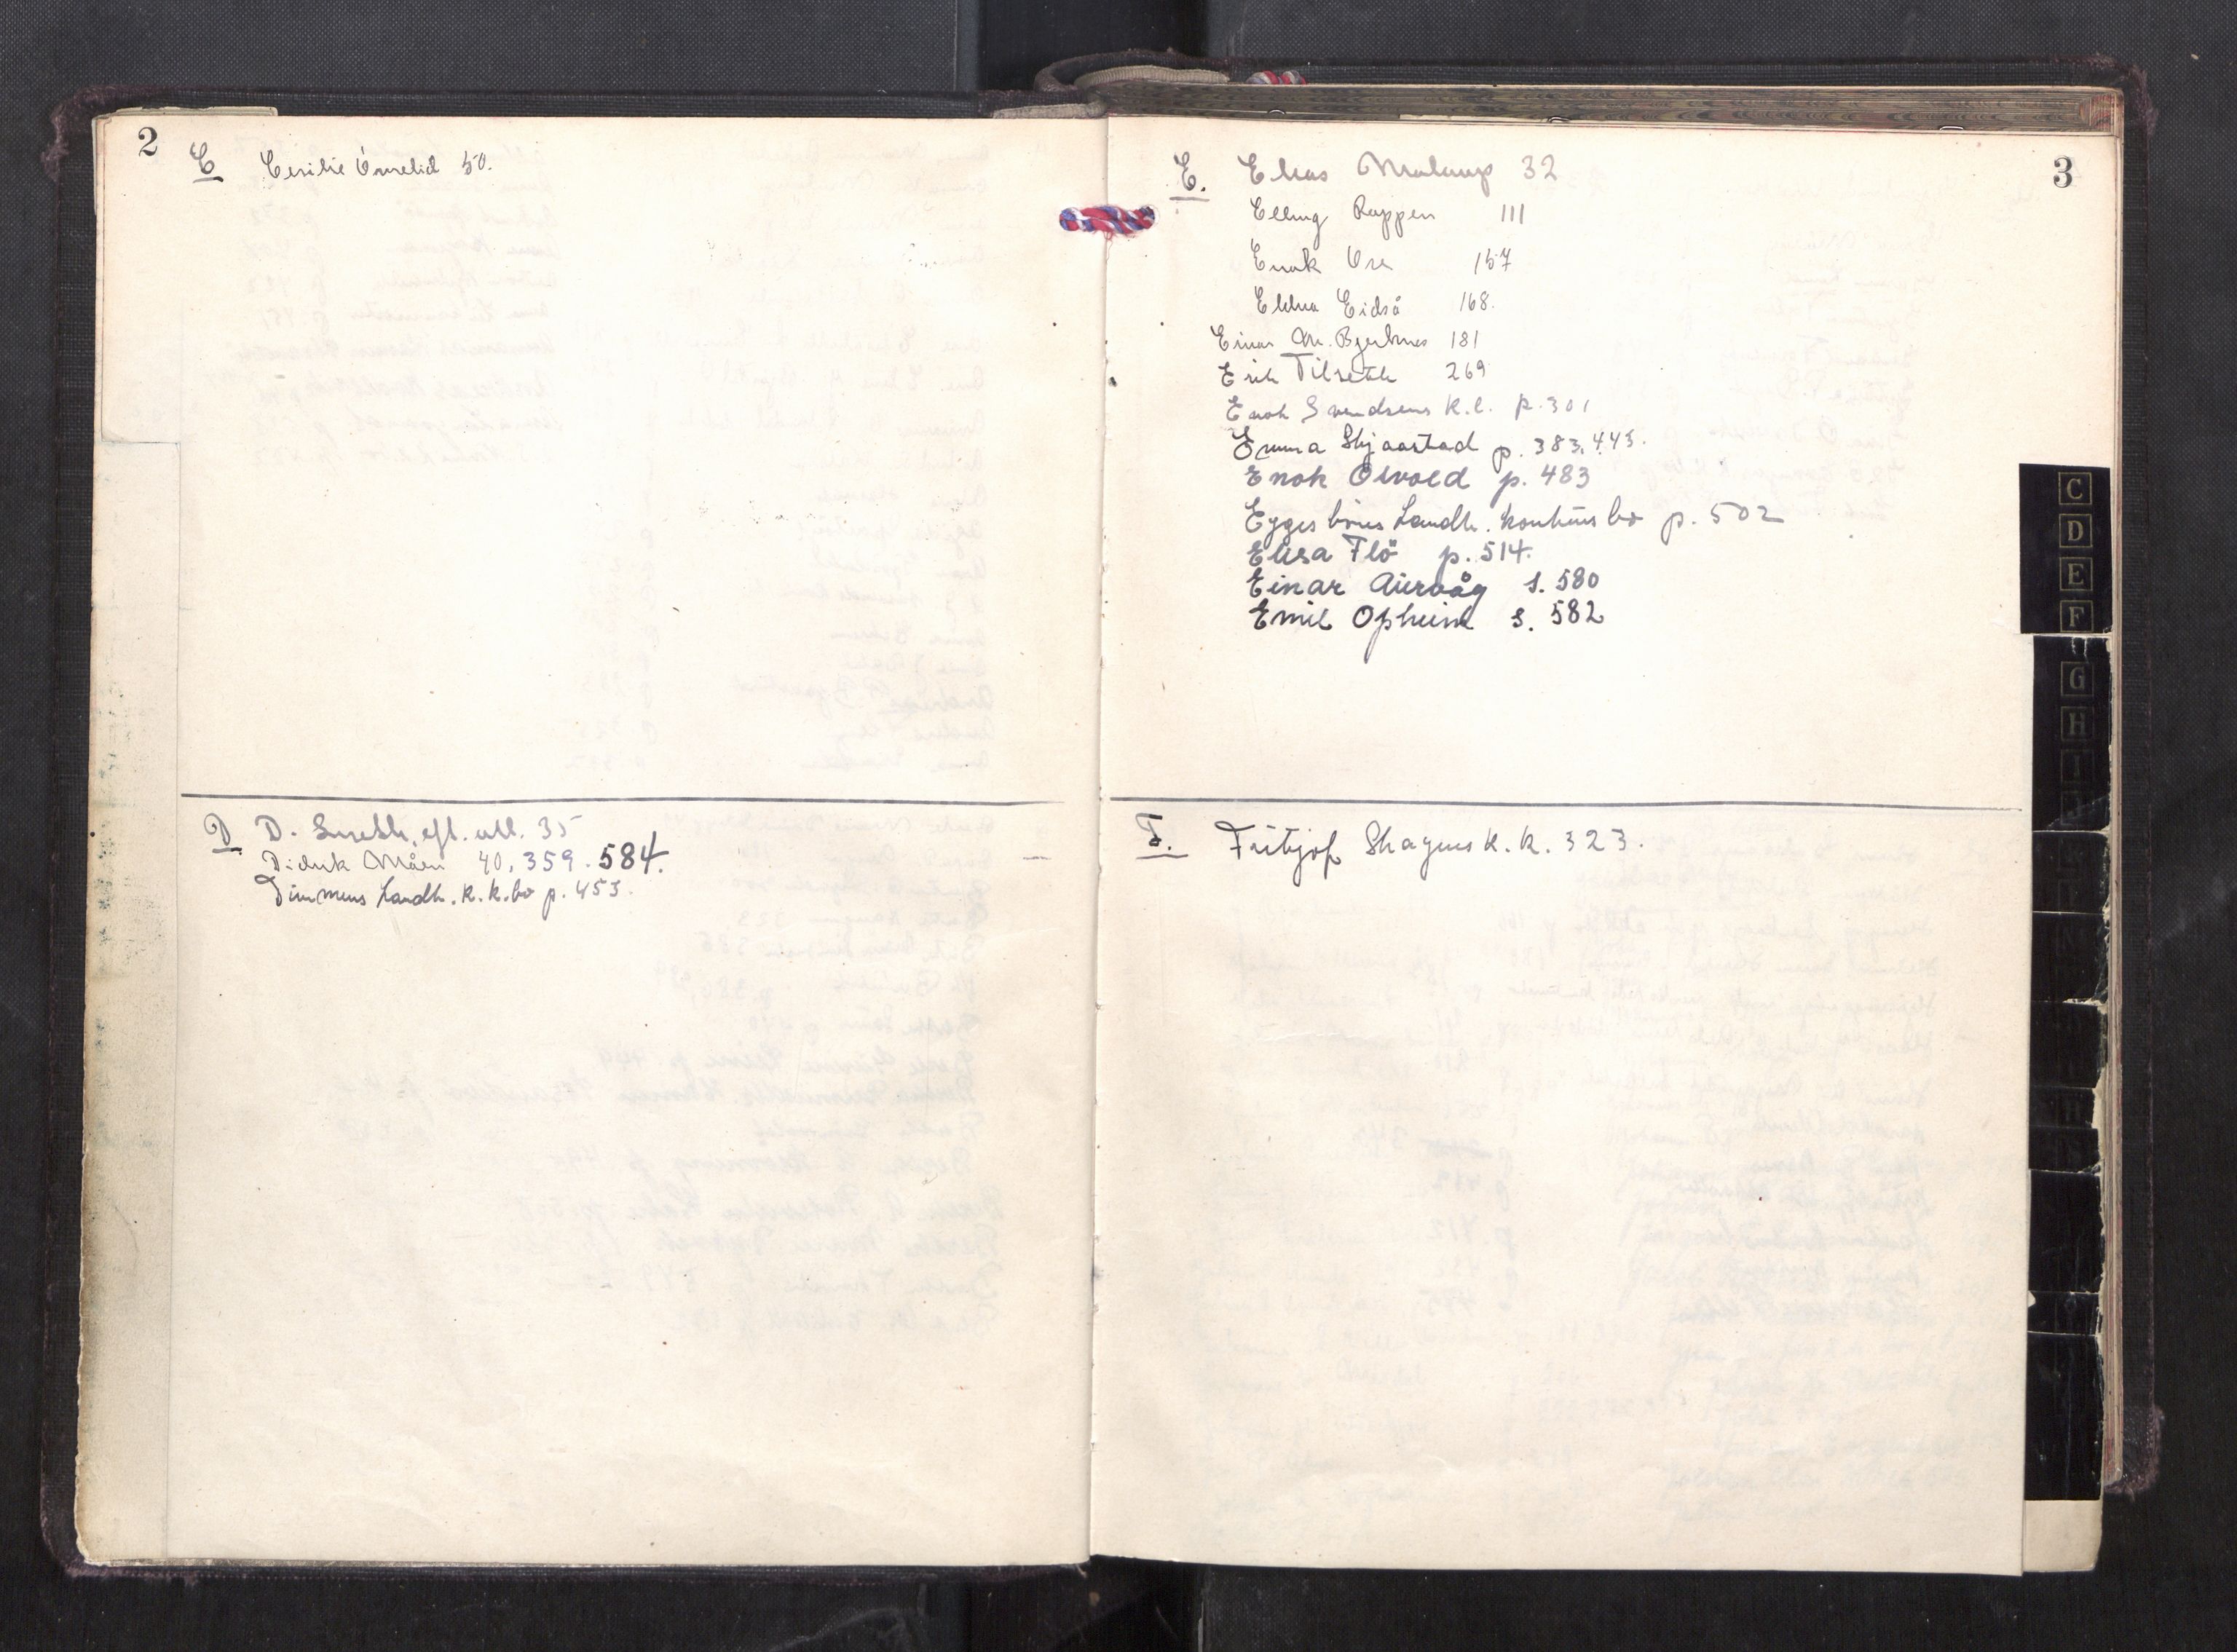 2
C Cesilie Ørnelid 50.
D D. efl. utl. 35
Didrik Måen 40, 359. 584.
Dimmens Landh. k. k. bo p. 453.
3
E. Elias 32
Elling Roppen 111
Enok Ose 157
Eldna Eidså 168.
Einar M. Bjerknes 181
Erik Tilseth 269
Enok Svendsens k.l. p. 301
Emma Skjaastad p. 383, 445.
Enok Osvold p. 483
Eggesbøns Landh. konkurs bo p. 502
Elisa Flö p. 514.
Einar Aurvåg s. 580
Emil Opheim s. 582
F. Fritjof Skagens k. k. 323.
C
D
E
F
G
H
I
J